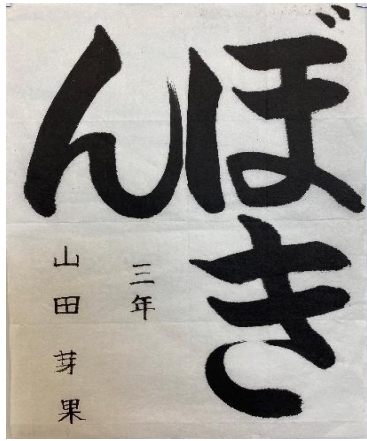 ぼき
ん
三年
山田芽果